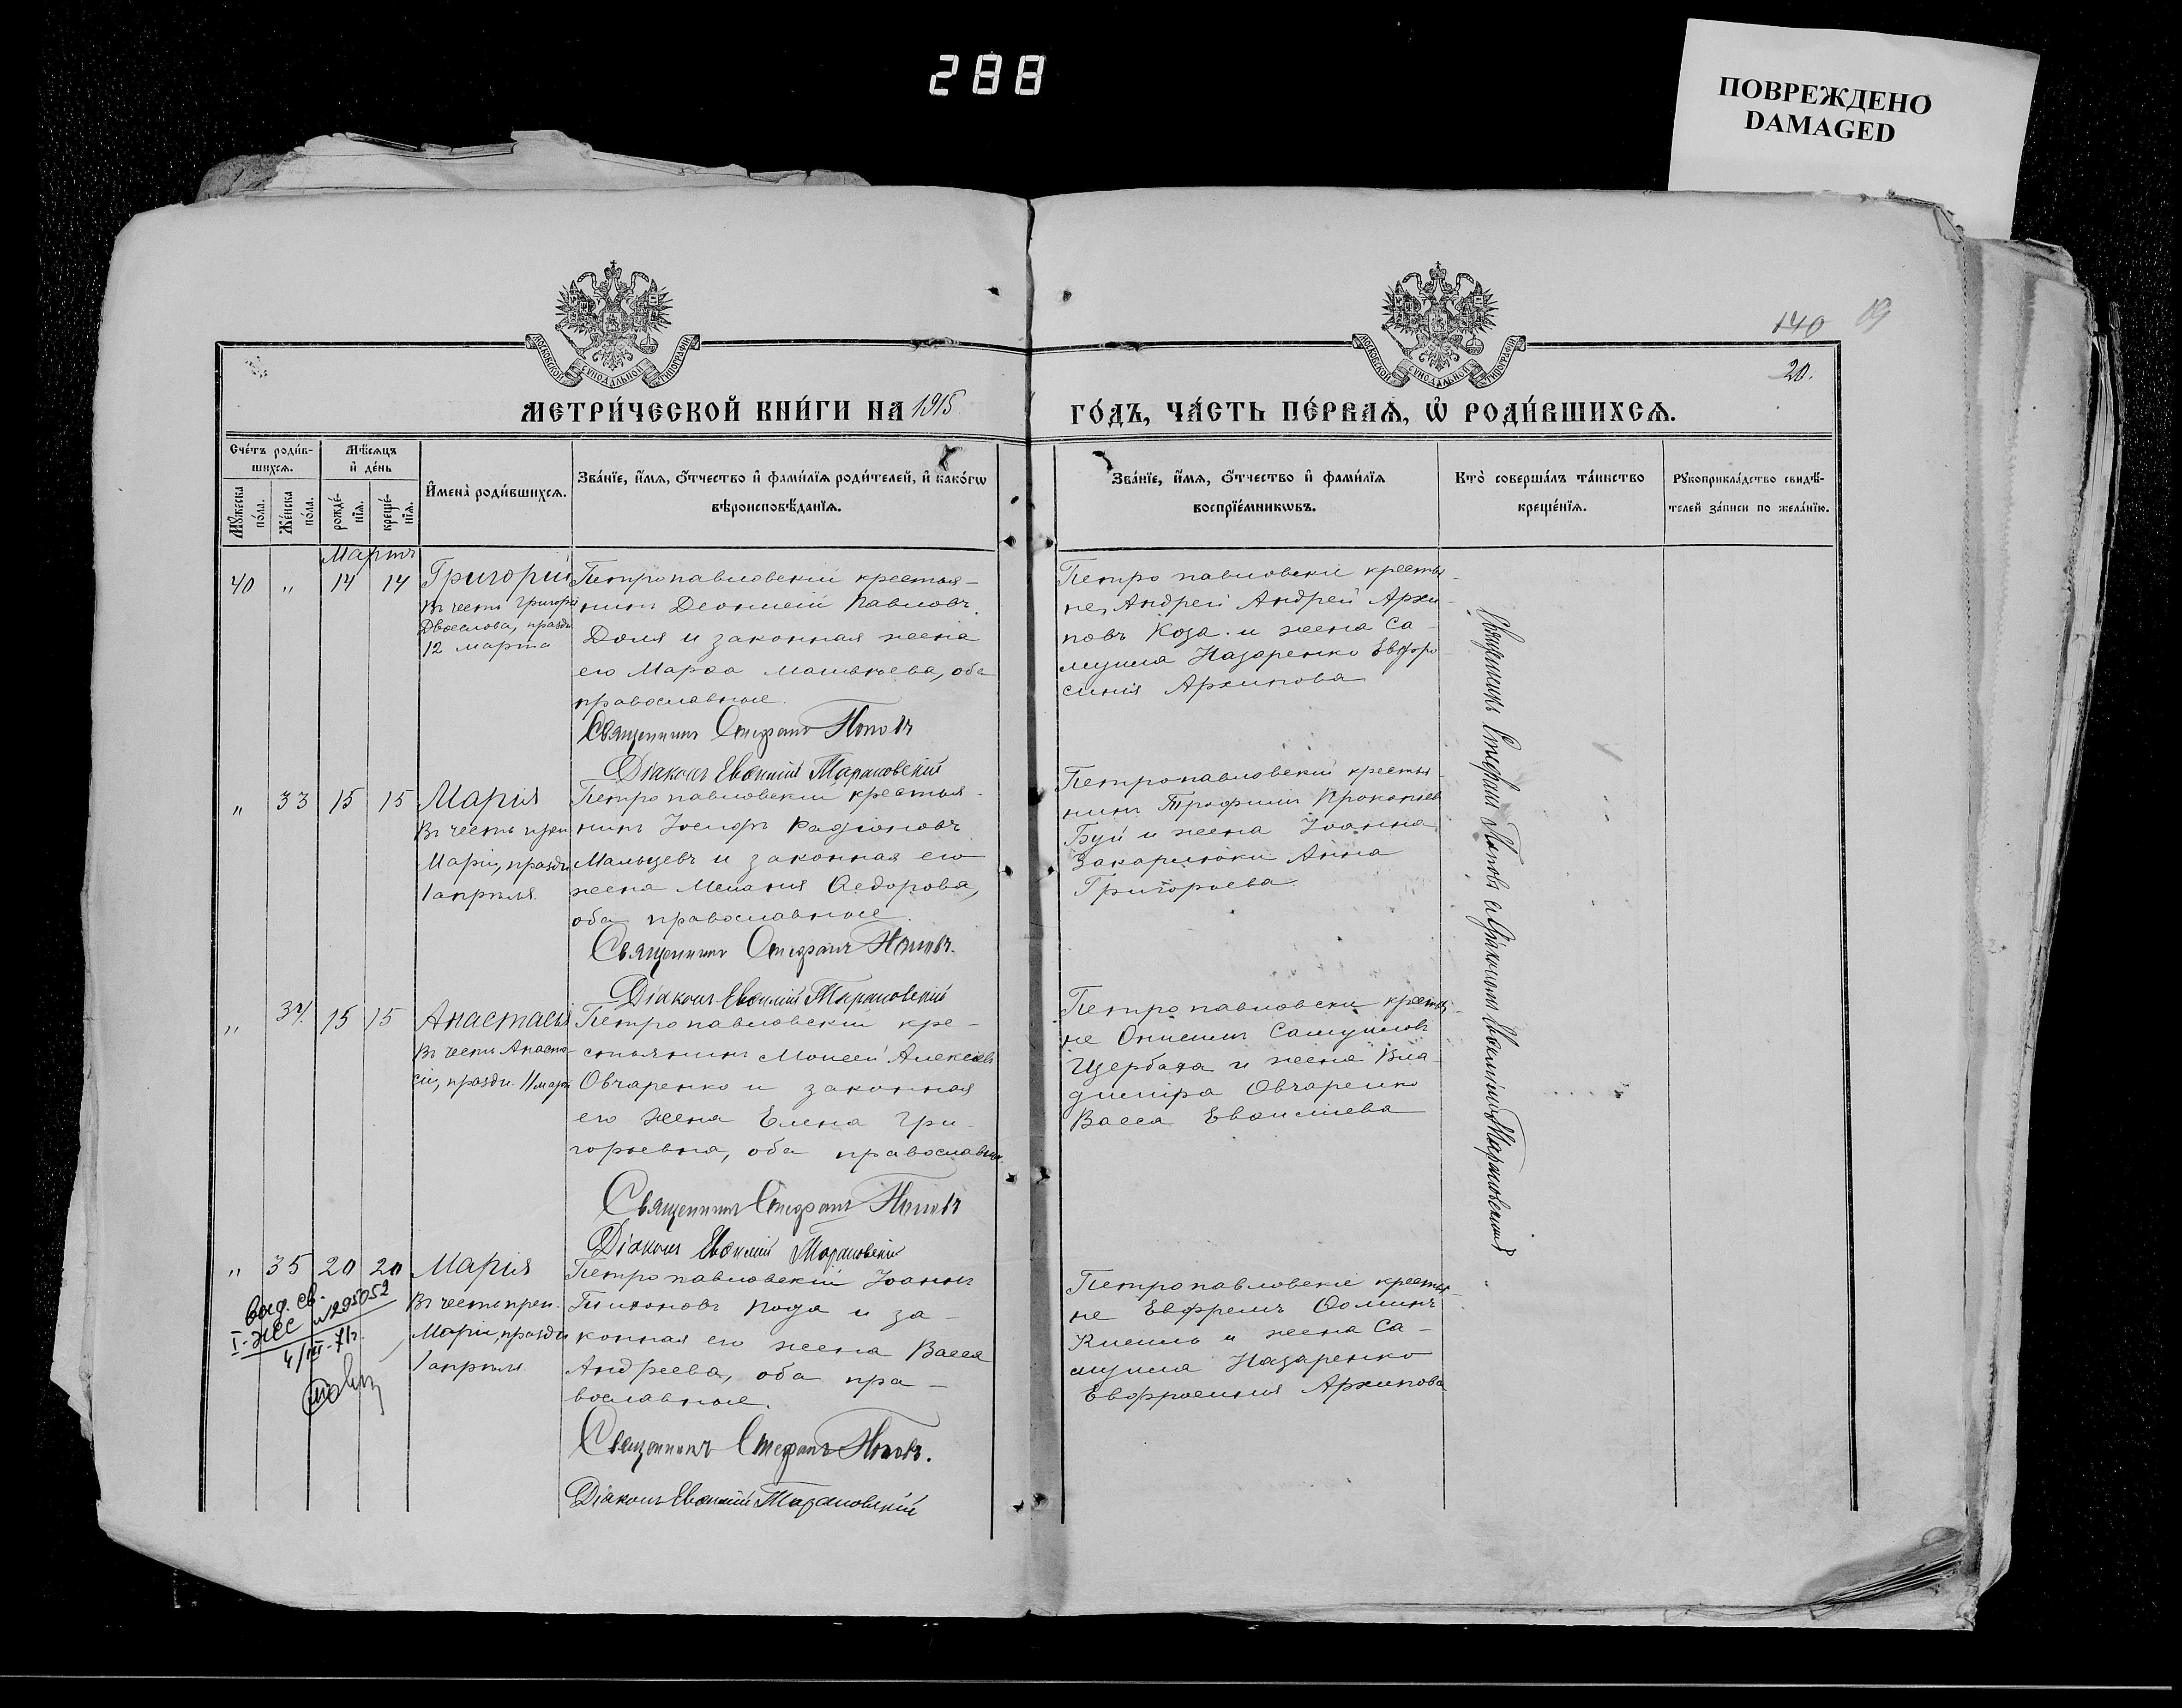 288
ПОВРЕЖДЕНО
DAMAGED
140
20.
МОСКОВСКОЙ СѴНОДАЛЬНОЙ ТИПОГРАФІИ
МОСКОВСКОЙ СѴНОДАЛЬНОЙ ТИПОГРАФІИ
МЕТРИ́ЧЕСКОЙ КНИ́ГИ НА 1915
ГО́ДЪ, ЧА́СТЬ ПЕ́РВАѦ, Ѡ҆ РОДИ́ВШИХСѦ.
Сче́тъ роди́в-
шихсѧ.
Мꙋ́жеска по́ла.
Же́нска по́ла.
Мѣ́сѧцъ
и҆ де́нь
рожде́-
нїѧ.
креще́-
нїѧ.
И҆мена̀ роди́вшихсѧ.
Зва́нїе, и҆́мѧ, ѻ҆́тчество и҆ фами́лїѧ роди́телей, и҆ како́гѡ
вѣроисповѣ́данїѧ.
Зва́нїе, и҆́мѧ, ѻ҆́тчество и҆ фами́лїѧ
воспрїе́мникѡвъ.
Кто̀ соверша́лъ та́инство
креще́нїѧ.
Рꙋкоприкла́дство свидѣ́-
телей за́писи по жела́нїю.
Мартъ
40 " 14 14
Григорій
Въ честь Григорія
Двоеслова, праздн
12 марта
Петропавловскій крестья-
нинъ Діонисій Павловъ
Доля и законная жена
его Марѳа Матвѣева, оба
православные.
Священникъ Стефанъ Поповъ
Діаконъ Евѳимій Тарановскій
Петропавловскіе крестья-
не, Андрей Андрей Архи-
повъ Коза. и жена Са-
муила Назаренко Евфро-
синія Архипова
" 33 15 15
Марія
Въ честь преп
Маріи, праздн
1 апрѣля.
Петропавловскій крестья-
нинъ Іосифъ Радіоновъ
Мальцевъ и законная его
жена Меланія Ѳедорова,
оба православные.
Священникъ Стефанъ Поповъ.
Діаконъ Евѳимій Тарановскій
Петропавловскій крестья-
нинъ Трофимъ Прокопіевъ
Буй и жена Іоанна
Захарлюки Анна
Григорьева
" 34. 15 15
Анастасія
Въ честь Анаста-
сіи, праздн. 11 мар
Петропавловскій кре-
стьянинъ Моисей Алексѣевъ
Овчаренко и законная
его жена Елена Гри-
горьевна, оба православн.
Священникъ Стефанъ Поповъ
Діаконъ Евѳимій Тарановскій
Петропавловскіи крестья-
не Онисимъ Самуиловъ
Щербата и жена Вла
диміра Овчаренко
Васса Евѳиміева
" 35 20 20
Марія
Въ честь преп.
Маріи, праздн
1 апрѣля
выд. св.
I-ЖС №1295052
4/III-71г.
Петропавловскій Іоаннъ
Тихоновъ Кода и за-
конная его жена Васса
Андреева, оба пра-
вославные.
Священникъ Стефанъ Поповъ.
Діаконъ Евѳимій Тарановскій
Петропавловскіе крестья-
не Евфремъ Ѳоминъ
Кисиль и жена Са-
муила Назаренко
Евфросинія Архипова
Священникъ Стефанъ Поповъ и Діаконъ Евѳимій Тарановскій